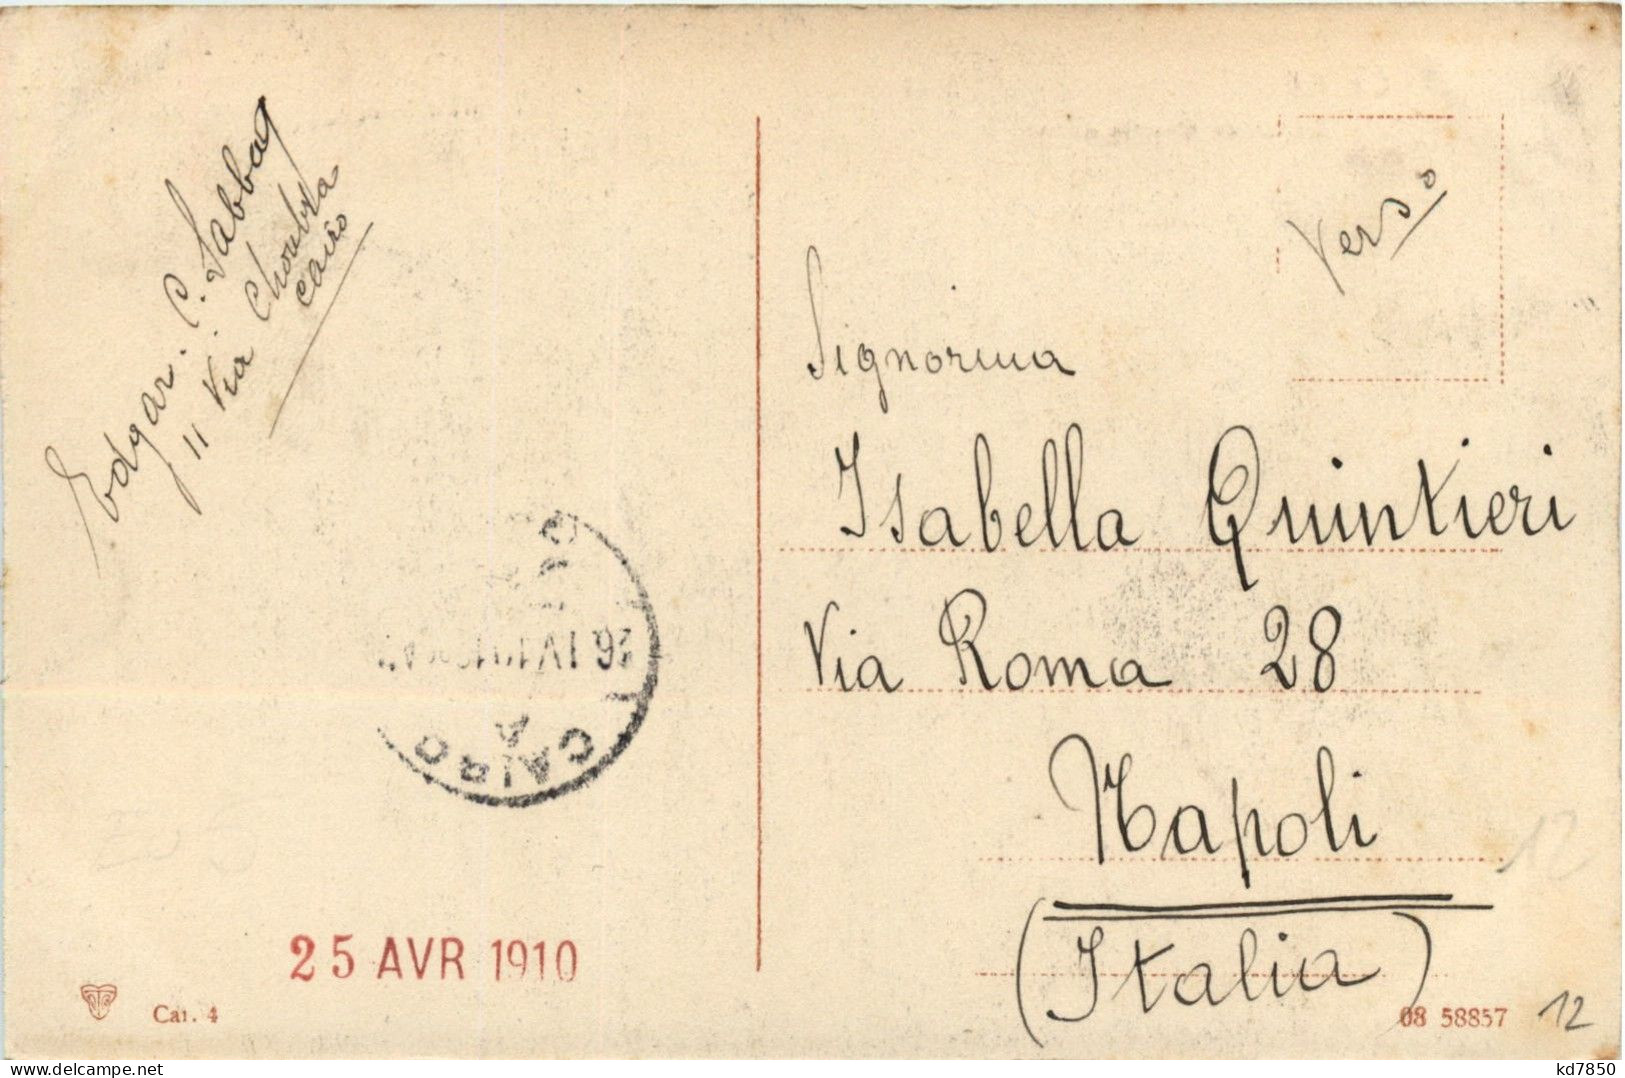 Edgar. C. Sabbag
11 Via Choubra
Cairo
Verso
Signorina
Isabella Quintieri
Via Roma 28
Napoli
(Italia)
CAIRO
A
26 IV 10
25 AVR 1910
Cai. 4
08 58857
12
12
kd7850